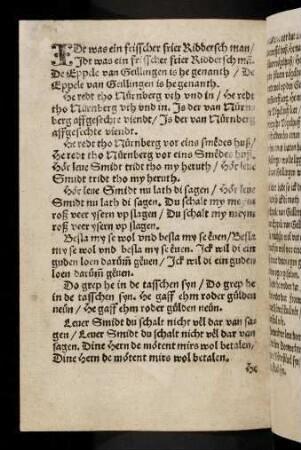 IDt was ein frisscher frier Riddersch man/
Idt was ein frisscher frier Ridderſch mā.
De Eppele van Geillingen is he genanth / De
Eppele van Geillingen is he genanth.
He redt tho Nürnberg vth vnd in / He redt
tho Nürnberg vth vnd in. Is der van Nürn
berg affgesechte viendt/ Is der van Nürnberg
affgesechte viendt.
He redt tho Nürnberg vor eins smēdes huß/
He redt tho Nürnberg vor eins Smēdes huß.
Hör leue Smidt tridt tho my heruth / Hör leue
Smidt tridt tho my heruth.
Hör leue Smidt nu lath di sagen / Hör leue
Smidt nu lath di sagen. Du schalt my meyn
roß veer ysern vp slagen / Du schalt my meyn
roß veer ysern vp slagen.
Besla my se wol vnd besla my se ēuen/ Besla
my se wol vnd besla my se ēuen. Ick wil di ein
guden loen darūm gēuen / Ick wil di ein guden
loen darūm gēuen.
Do grep he in de tasschen syn / Do grep he
in de tasschen syn. He gaff ehm roder gülden
neün / He gaff ehm roder gülden neün.
Leuer Smidt du schalt nicht vēl dar van sa-
gen / Leuer Smidt du schalt nicht vēl dar van
sagen. Dine Hern de mōtent mirs wol betalen/
Dine Hern de mōtent mirs wol betalen.
He